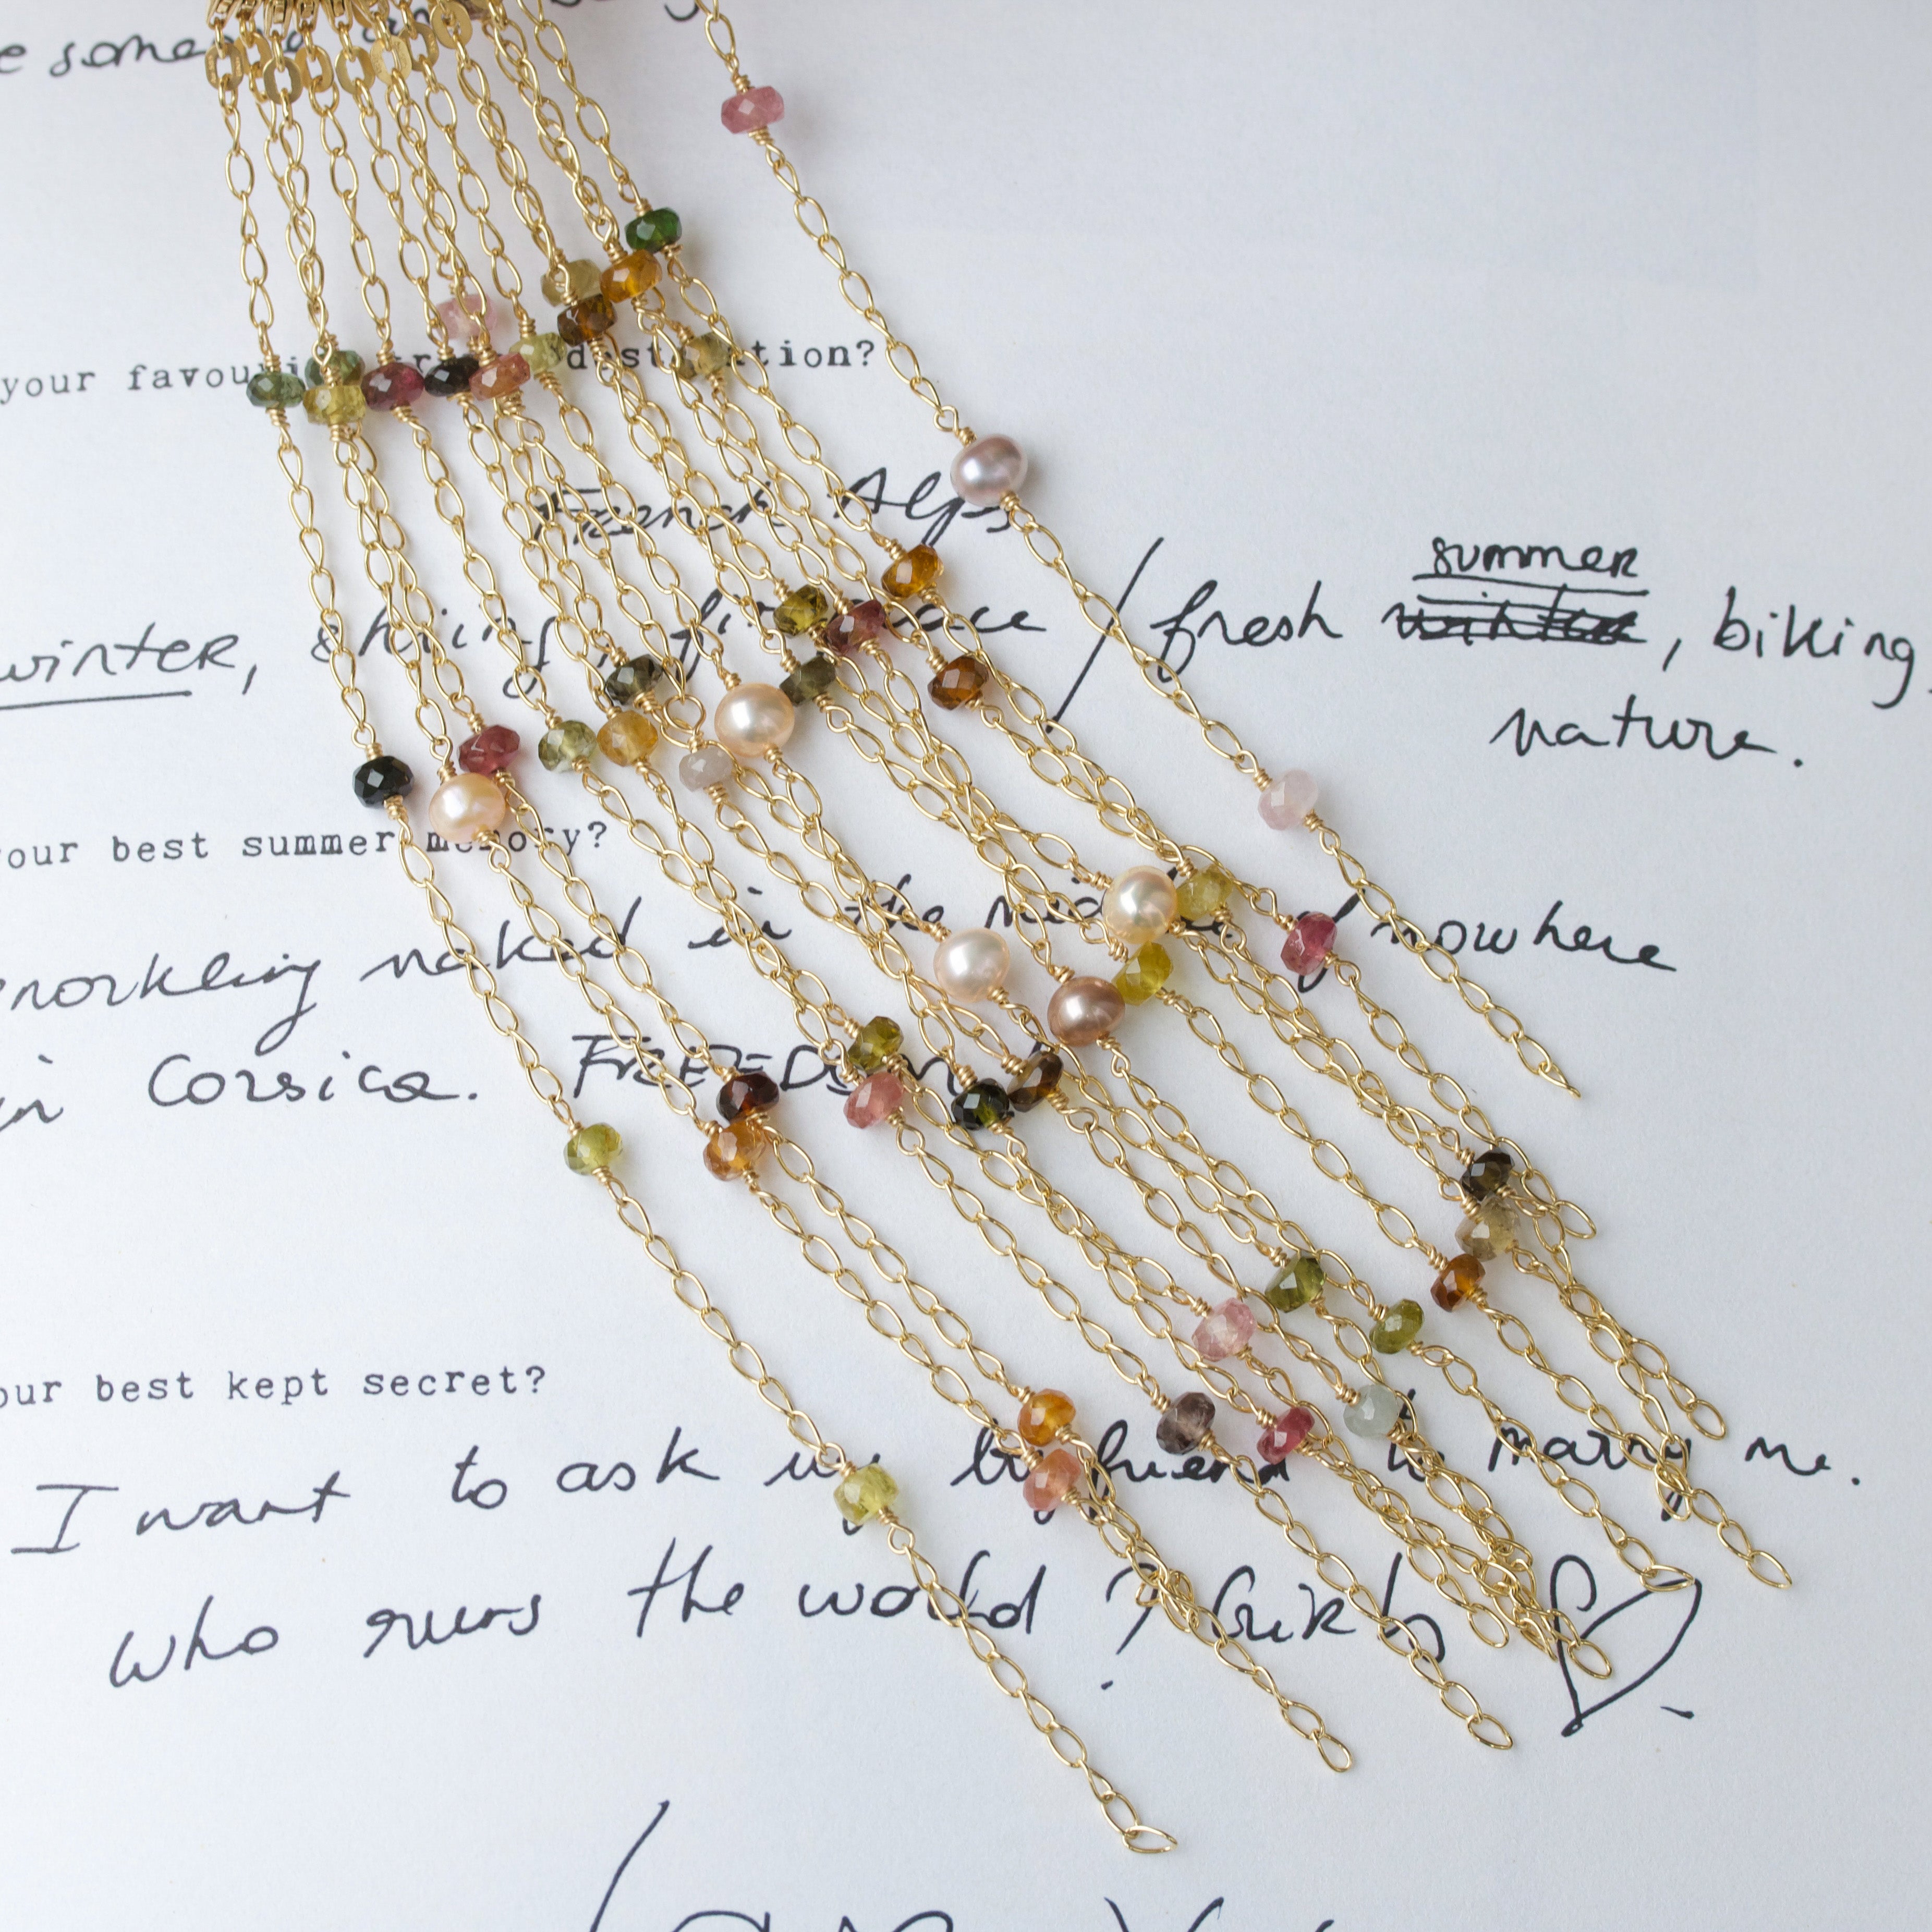 e some
your favourite destination?
French Alps
winter, skiing, fireplace / fresh summer winter, biking
nature.
our best summer memory?
norkling naked in the middle of nowhere
in Corsica. FREEDOM
our best kept secret?
I want to ask my boyfriend to marry me.
who runs the world ? Girls